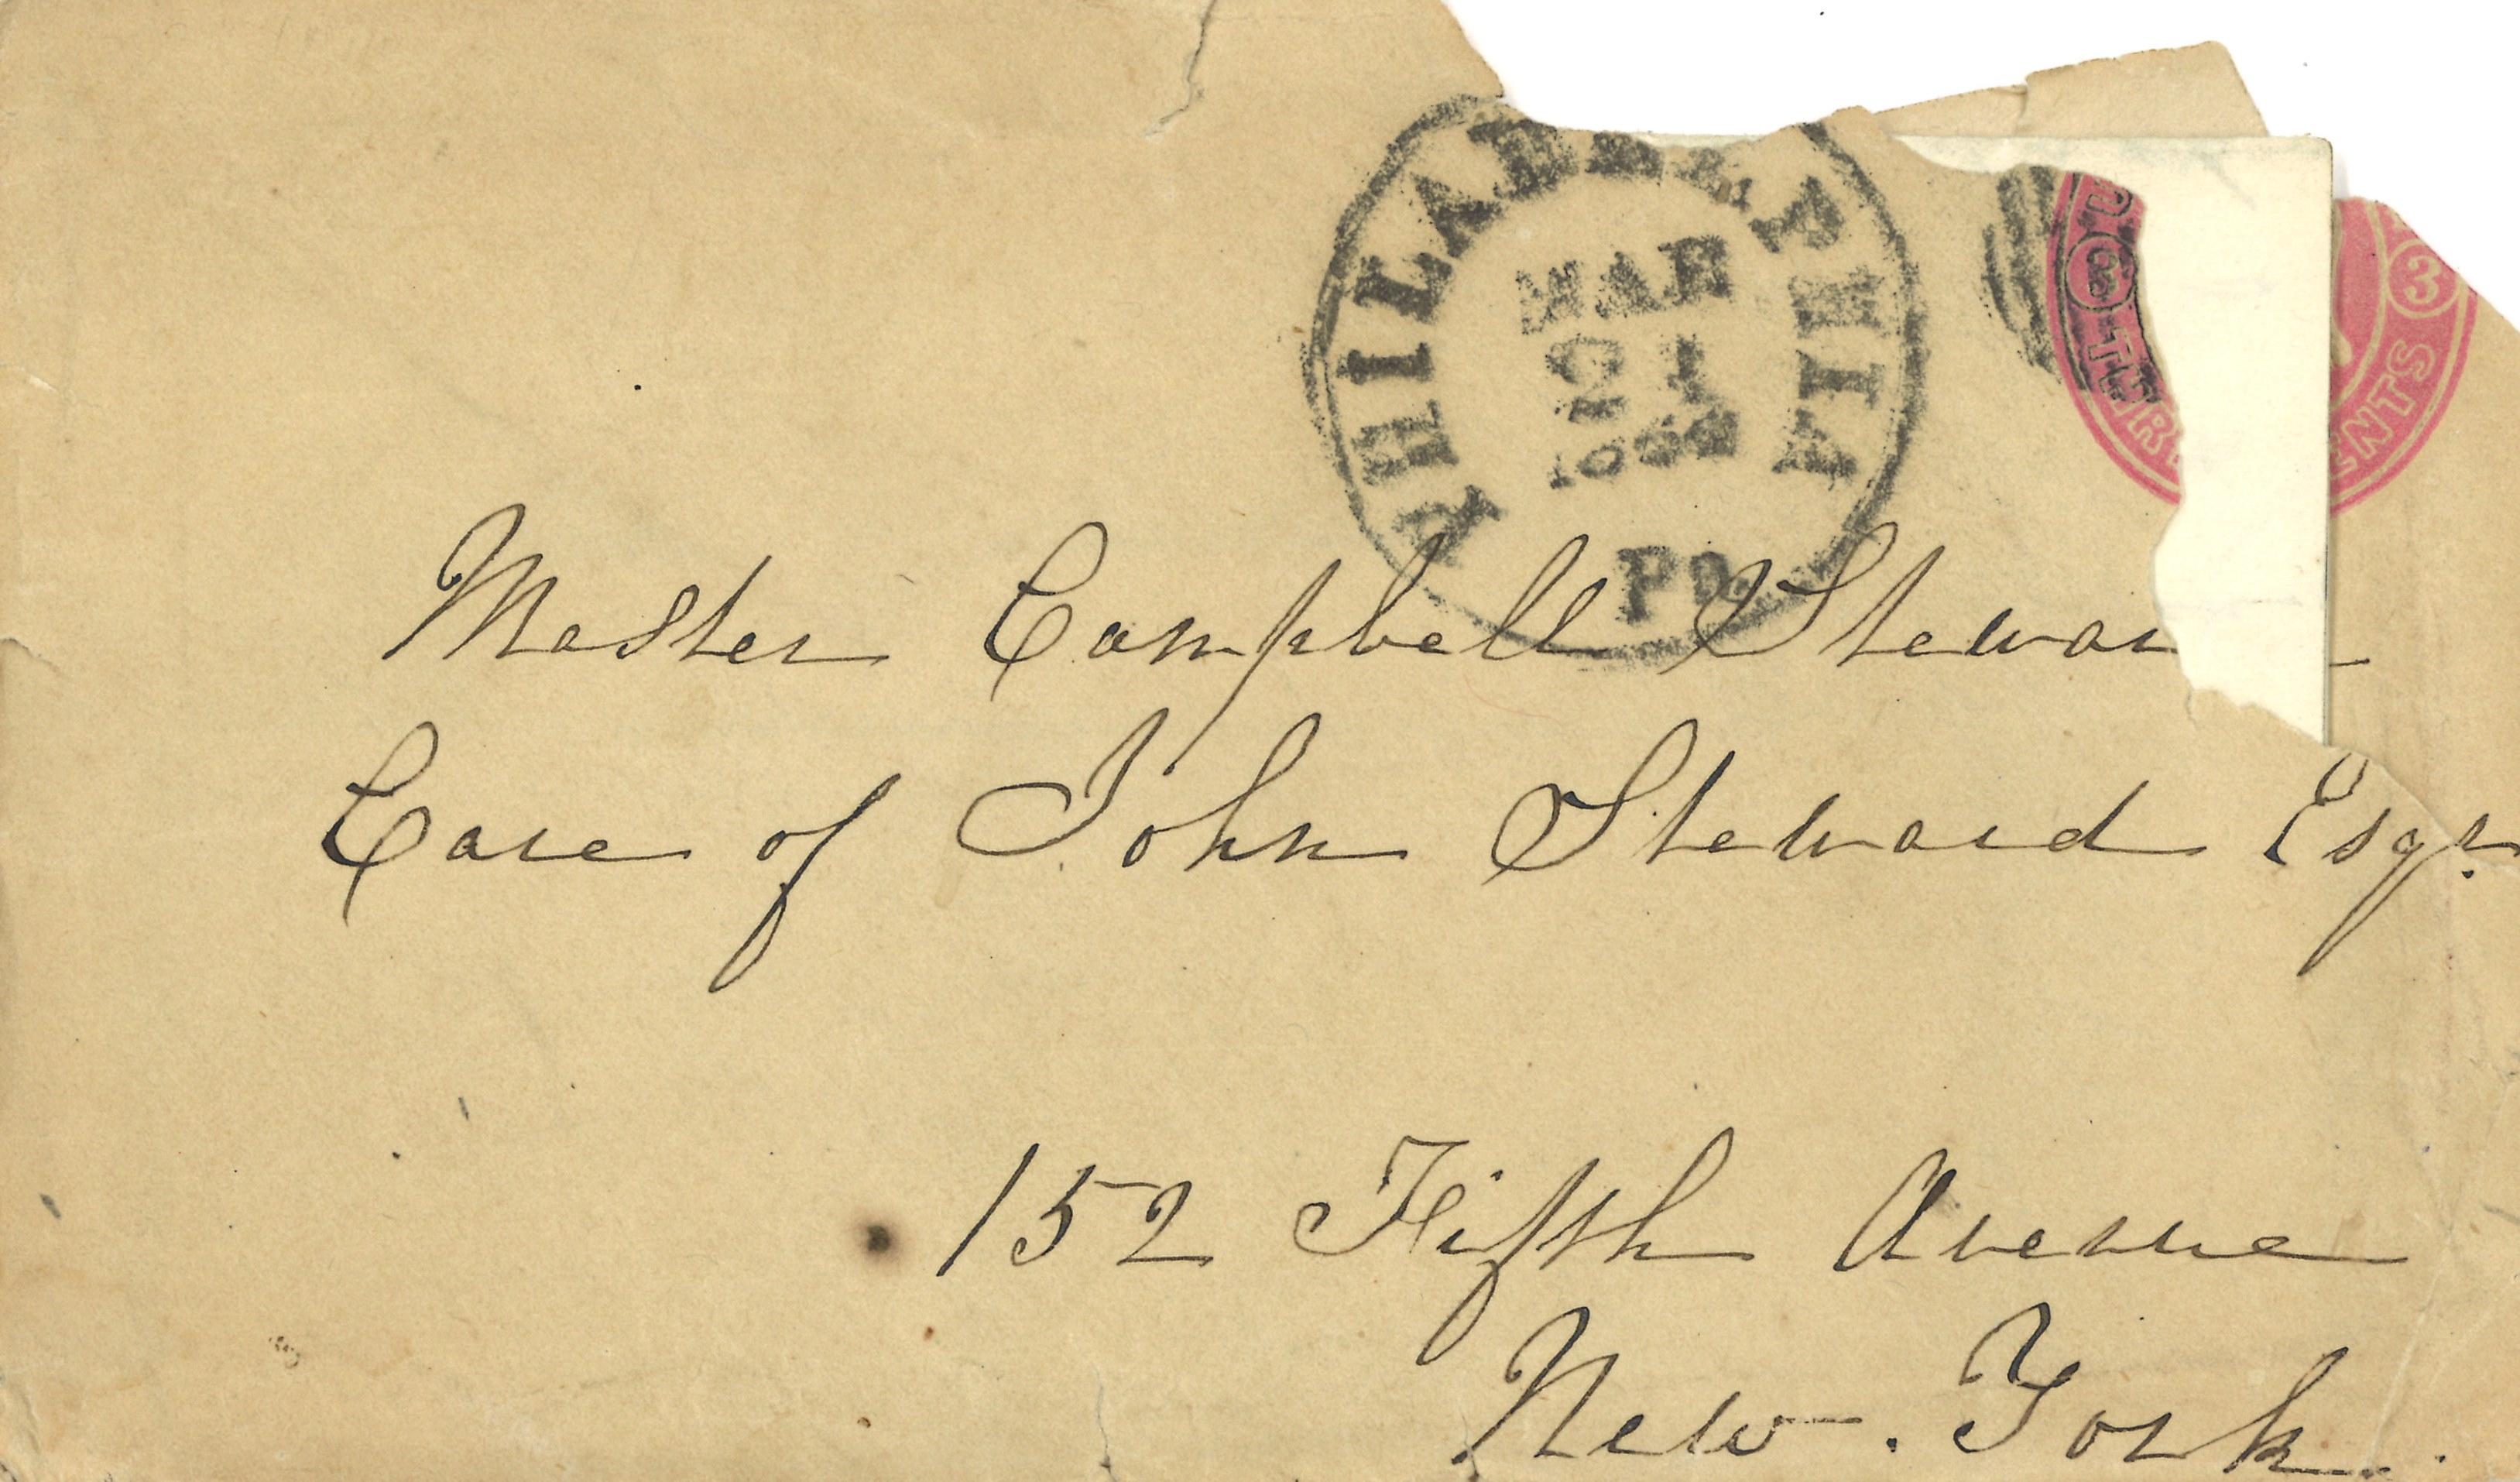 PHILADELPHIA
MAR
PA
3
3
CENTS
Master Campbell Stewar
Care of John Steward Esqr.
152 Fifth Avenue
New. York.